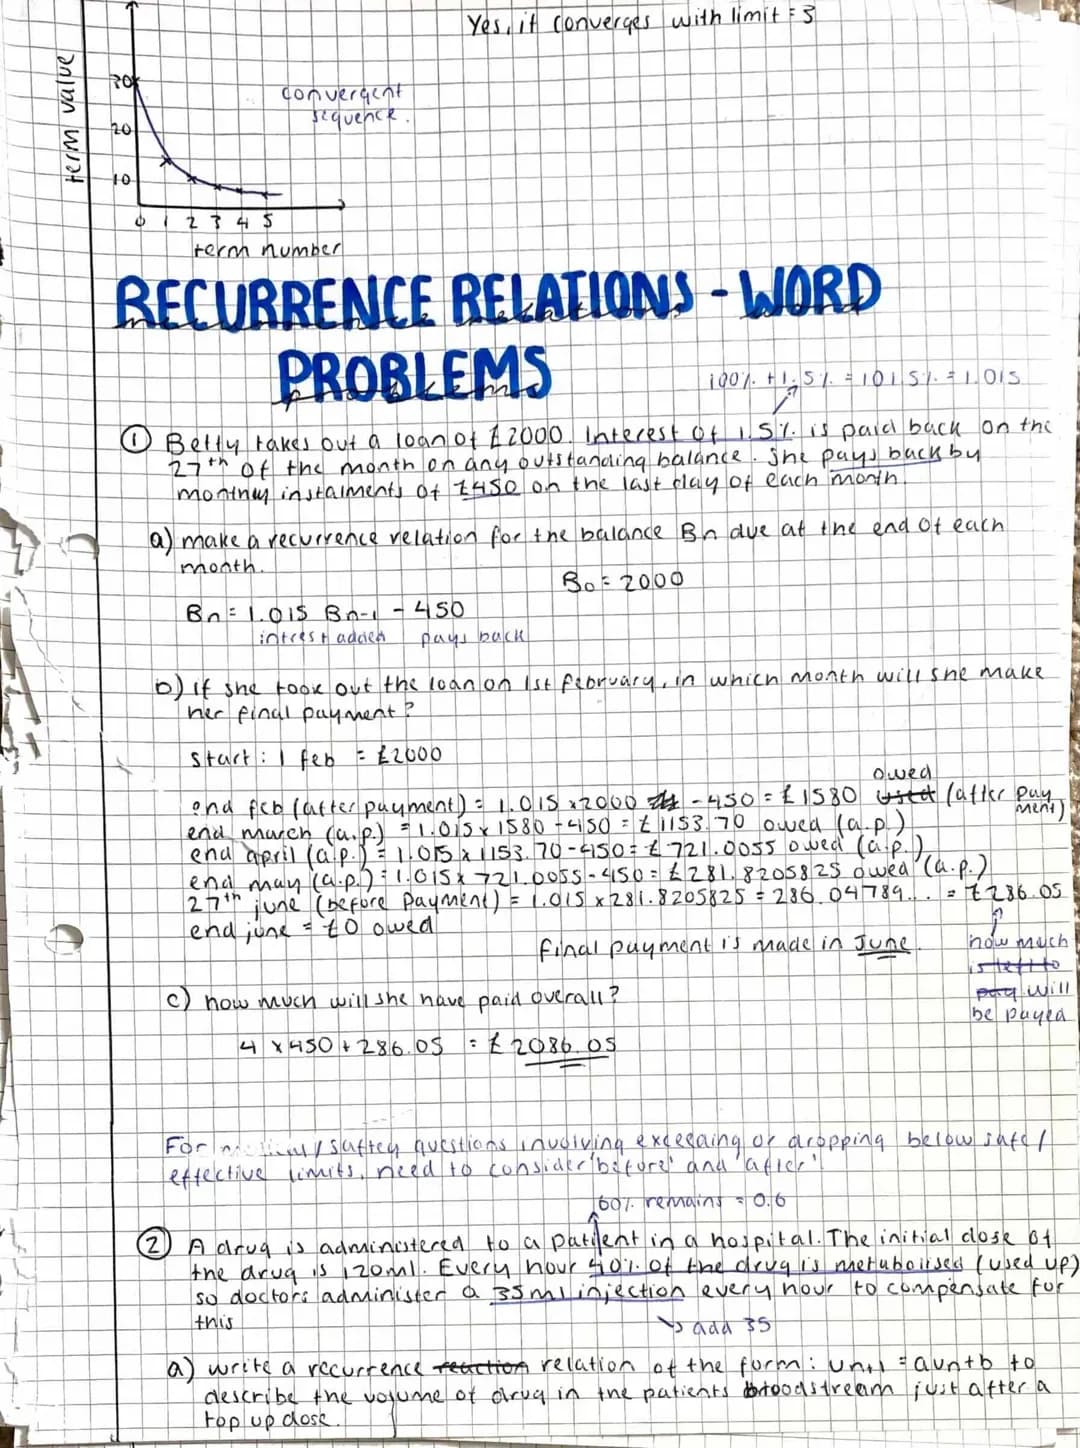 Yes, it converges with limit = 3
term value
30
convergent
sequence.
20
10
0 1 2 3 4 5
term number
RECURRENCE RELATIONS - WORD
PROBLEMS
100% + 1.5% = 101.5% = 1.015
① Betty takes out a loan of £2000. Interest of 1.5% is paid back on the
27th of the month on any outstanding balance. She pays back by
monthly instalments of £450 on the last day of each month.
a) make a recurrence relation for the balance Bn due at the end of each
month.
B0 = 2000
Bn = 1.015 Bn-1 - 450
intrest added pays back
b) if she took out the loan on 1st february, in which month will she make
her final payment?
start: 1 feb = £2000
owed
end feb (after payment) = 1.015 x 2000 - 450 = £1580 used (after pay
ment)
end march (a.p.) = 1.015 x 1580 - 450 = £1153.70 owed (a.p.)
end april (a.p.) = 1.015 x 1153.70 - 450 = £721.0055 owed (a.p.)
end may (a.p.) = 1.015 x 721.0055 - 450 = £281.8205825 owed (a.p.)
27th june (before payment) = 1.015 x 281.8205825 = 286.04789... = £286.05
end june = £0 owed
final payment is made in June.
how much
is left to
pay will
be payed
c) how much will she have paid overall?
4 x 450 + 286.05 = £2086.05
For / saftey questions involving exceeding or dropping below safe /
effective limits, need to consider 'before' and 'after'
60% remains = 0.6
② A drug is administered to a patient in a hospital. The initial dose of
the drug is 120ml. Every hour 40% of the drug is metabolised (used up)
so doctors administer a 35ml injection every hour to compensate for
this
↳ add 35
a) write a recurrence reaction relation of the form: un+1 = aun+b to
describe the volume of drug in the patients bloodstream just after a
top up dose.